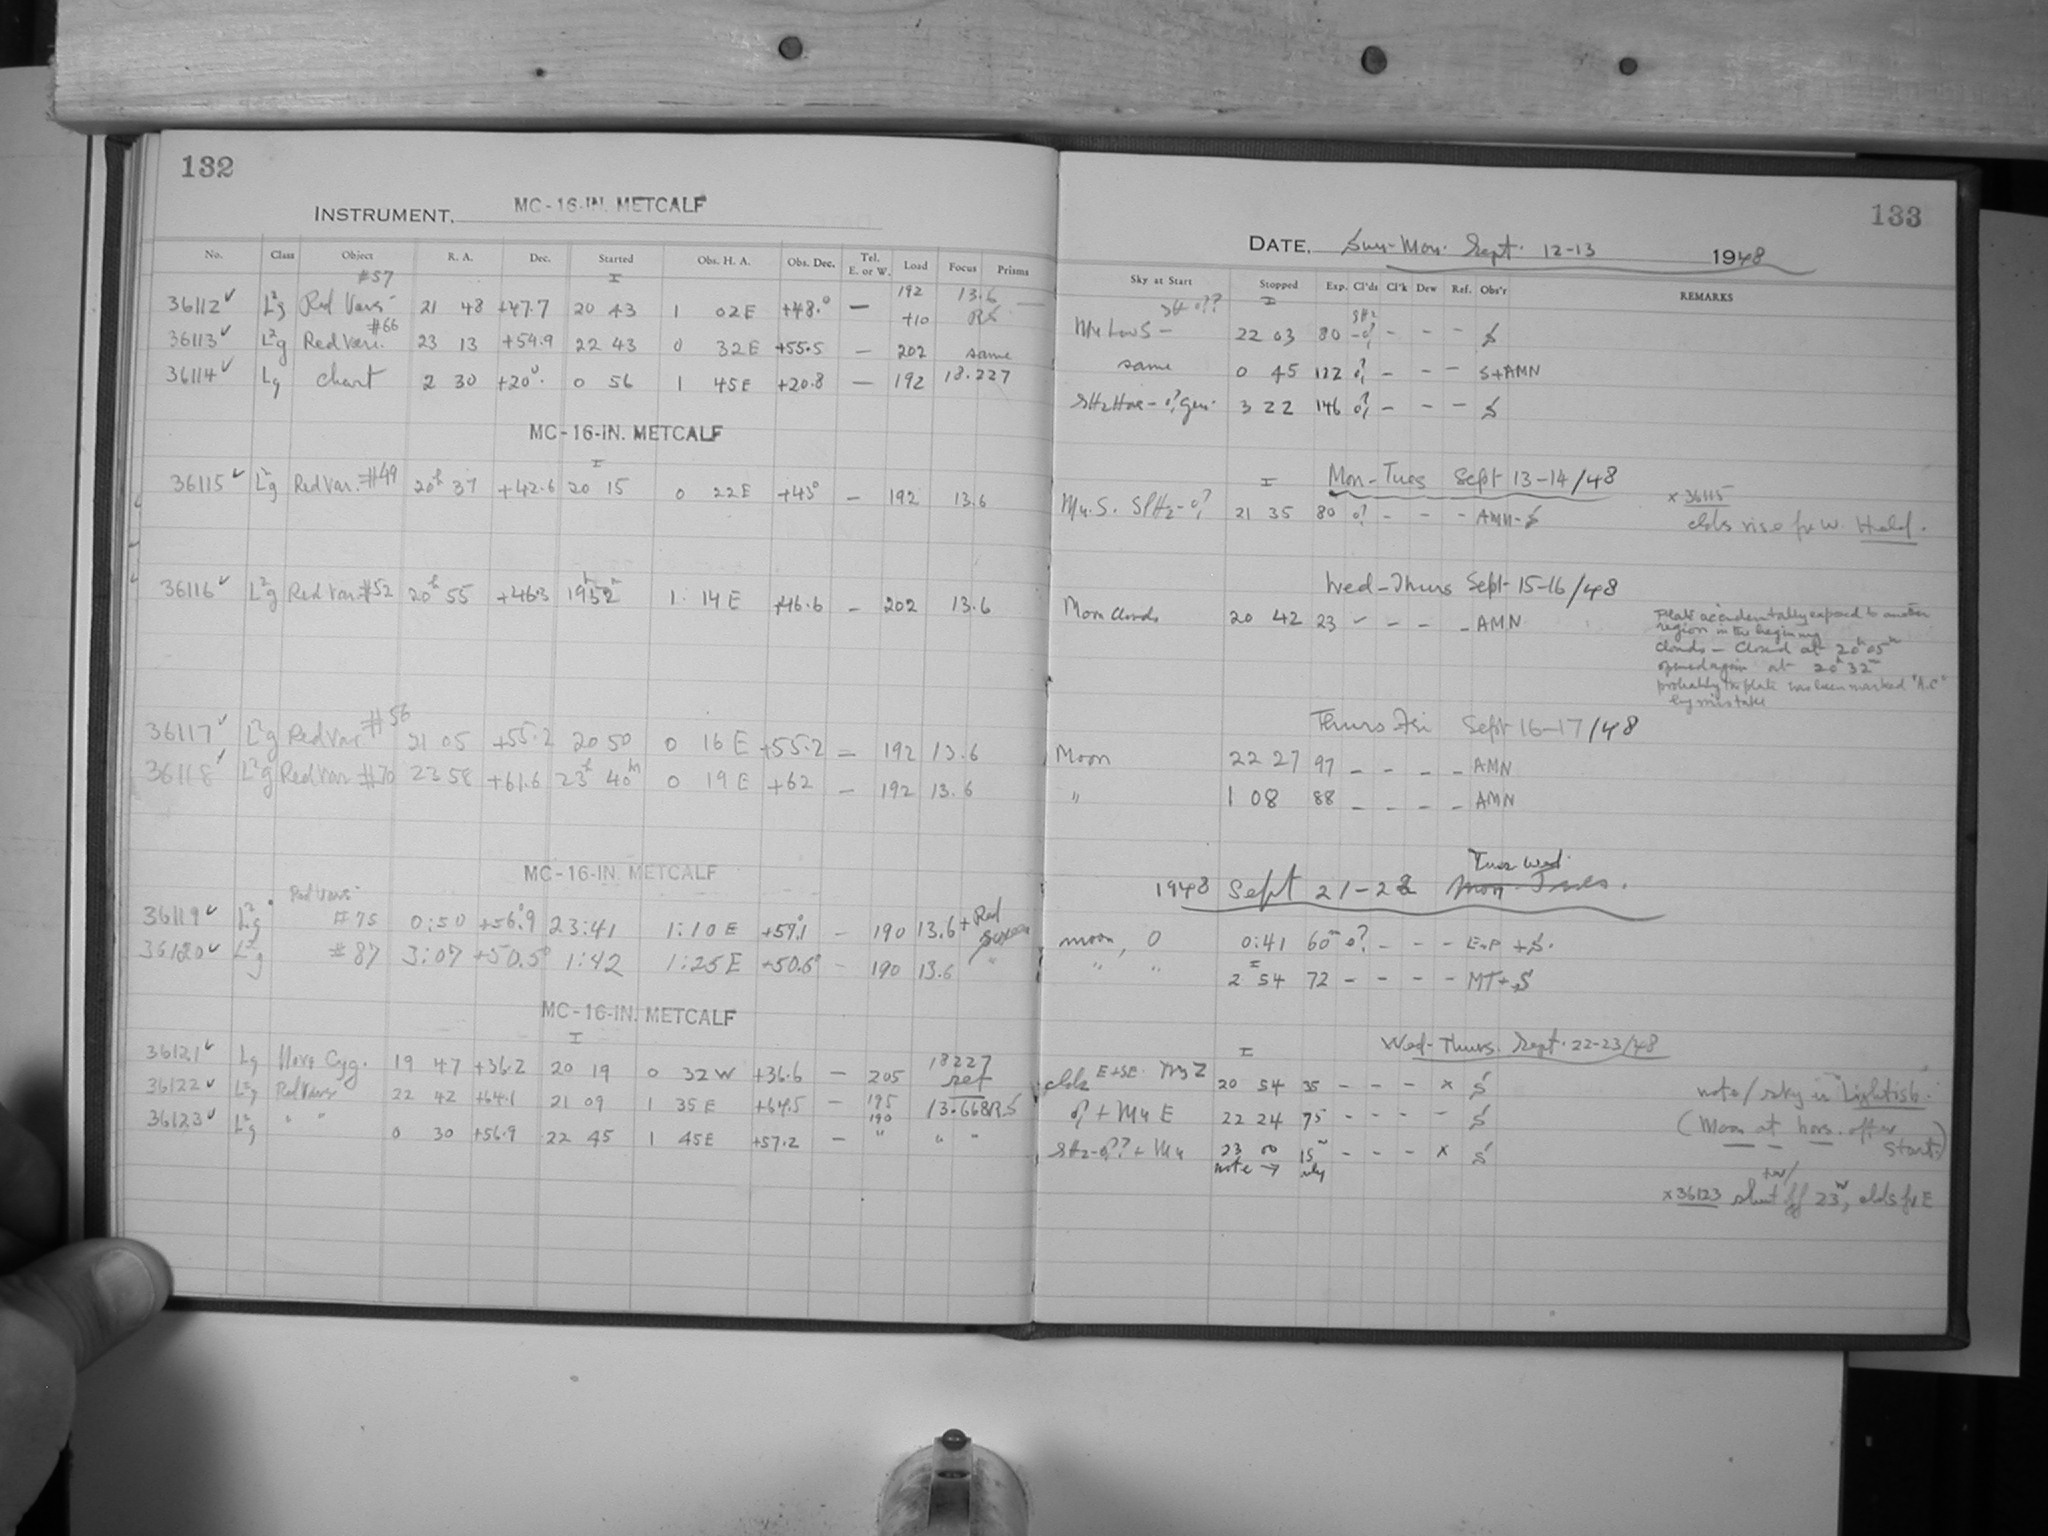 132
INSTRUMENT. MC-16-IN. METCALF
No. Class Object R. A. Dec. Started Obs. H. A. Obs. Dec. Tel. E. or W. Load Focus Prisms
#57
36112 L²g Red Vars 21 48 +47.7 20 43 1 02E +48.° — 192 +10 13.6 RS
36113 L²g Red Vars. #66 23 13 +54.9 22 43 0 32E +55.5 — 202 same
36114 Lg chart 2 30 +20°. 0 56 1 45E +20.8 — 192 18.227
MC-16-IN. METCALF
36115 L²g Red Var. #49 20h 37 +42.6 20 15 0 22E +43° — 192 13.6
36116 L²g Red Var. #52 20h 55 +46.3 19h 52m 1: 14E +46.6 — 202 13.6
36117 L²g Red Var #56 21 05 +55.2 20 50 0 16E +55.2 — 192 13.6
36118 L²g Red Var #70 23 58 +61.6 23h 40m 0 19E +62 — 192 13.6
MC-16-IN. METCALF
Red Vars
36119 L²g #75 0:50 +56°.9 23:41 1:10E +57.1 - 190 13.6 + Red Screen
36120 L²g #87 3:07 +50.5° 1:42 1:25E +50.6° - 190 13.6 "
MC-16-IN. METCALF
36121 Lg Nova Cyg. 19 47 +36.2 20 19 0 32W +36.6 — 205 18227 ref
36122 L²g Red Vars 22 42 +64.1 21 09 1 35E +64.5 — 195 190 13.668RS
36123 L²g " " 0 30 +56.9 22 45 1 45E +57.2 — " " "
133
DATE. Sun-Mon. Sept. 12-13 1948
Sky at Start Stopped Exp. Cl'ds Cl'k Dew Ref. Obs'r REMARKS
22 03 80 - - - S
same 0 45 122 - - - S+AMN
3 22 146 - - - S
Mon-Tues Sept 13-14/48
21 35 80 - - - AMN-S
x 36115
clds rise fr W. Held.
Wed-Thurs Sept 15-16/48
Moon Clouds 20 42 23 - - - AMN
Plate accidentally exposed to another
region in the beginning
clouds — Closed at 20h 05m
opened again at 20h 32m
probably the plate has been marked "A.C"
by mistake
Thurs Fri Sept 16-17/48
Moon 22 27 97 - - - - AMN
" 1 08 88 - - - - AMN
Tues Wed.
1948 Sept 21-22 Mon-Tues.
moon, 0 0:41 60m - - - +S.
" " 2 54 72 - - - - MT+S
Wed-Thurs. Sept. 22-23/48
clds E+SE 20 54 35 - - - x S
note/ sky is "Lightish".
22 24 75 - - - - S
(Moon at hors. after
start.)
23 00 15m - - - x S
note → only
x 36123 shut off 23h, clds fr E